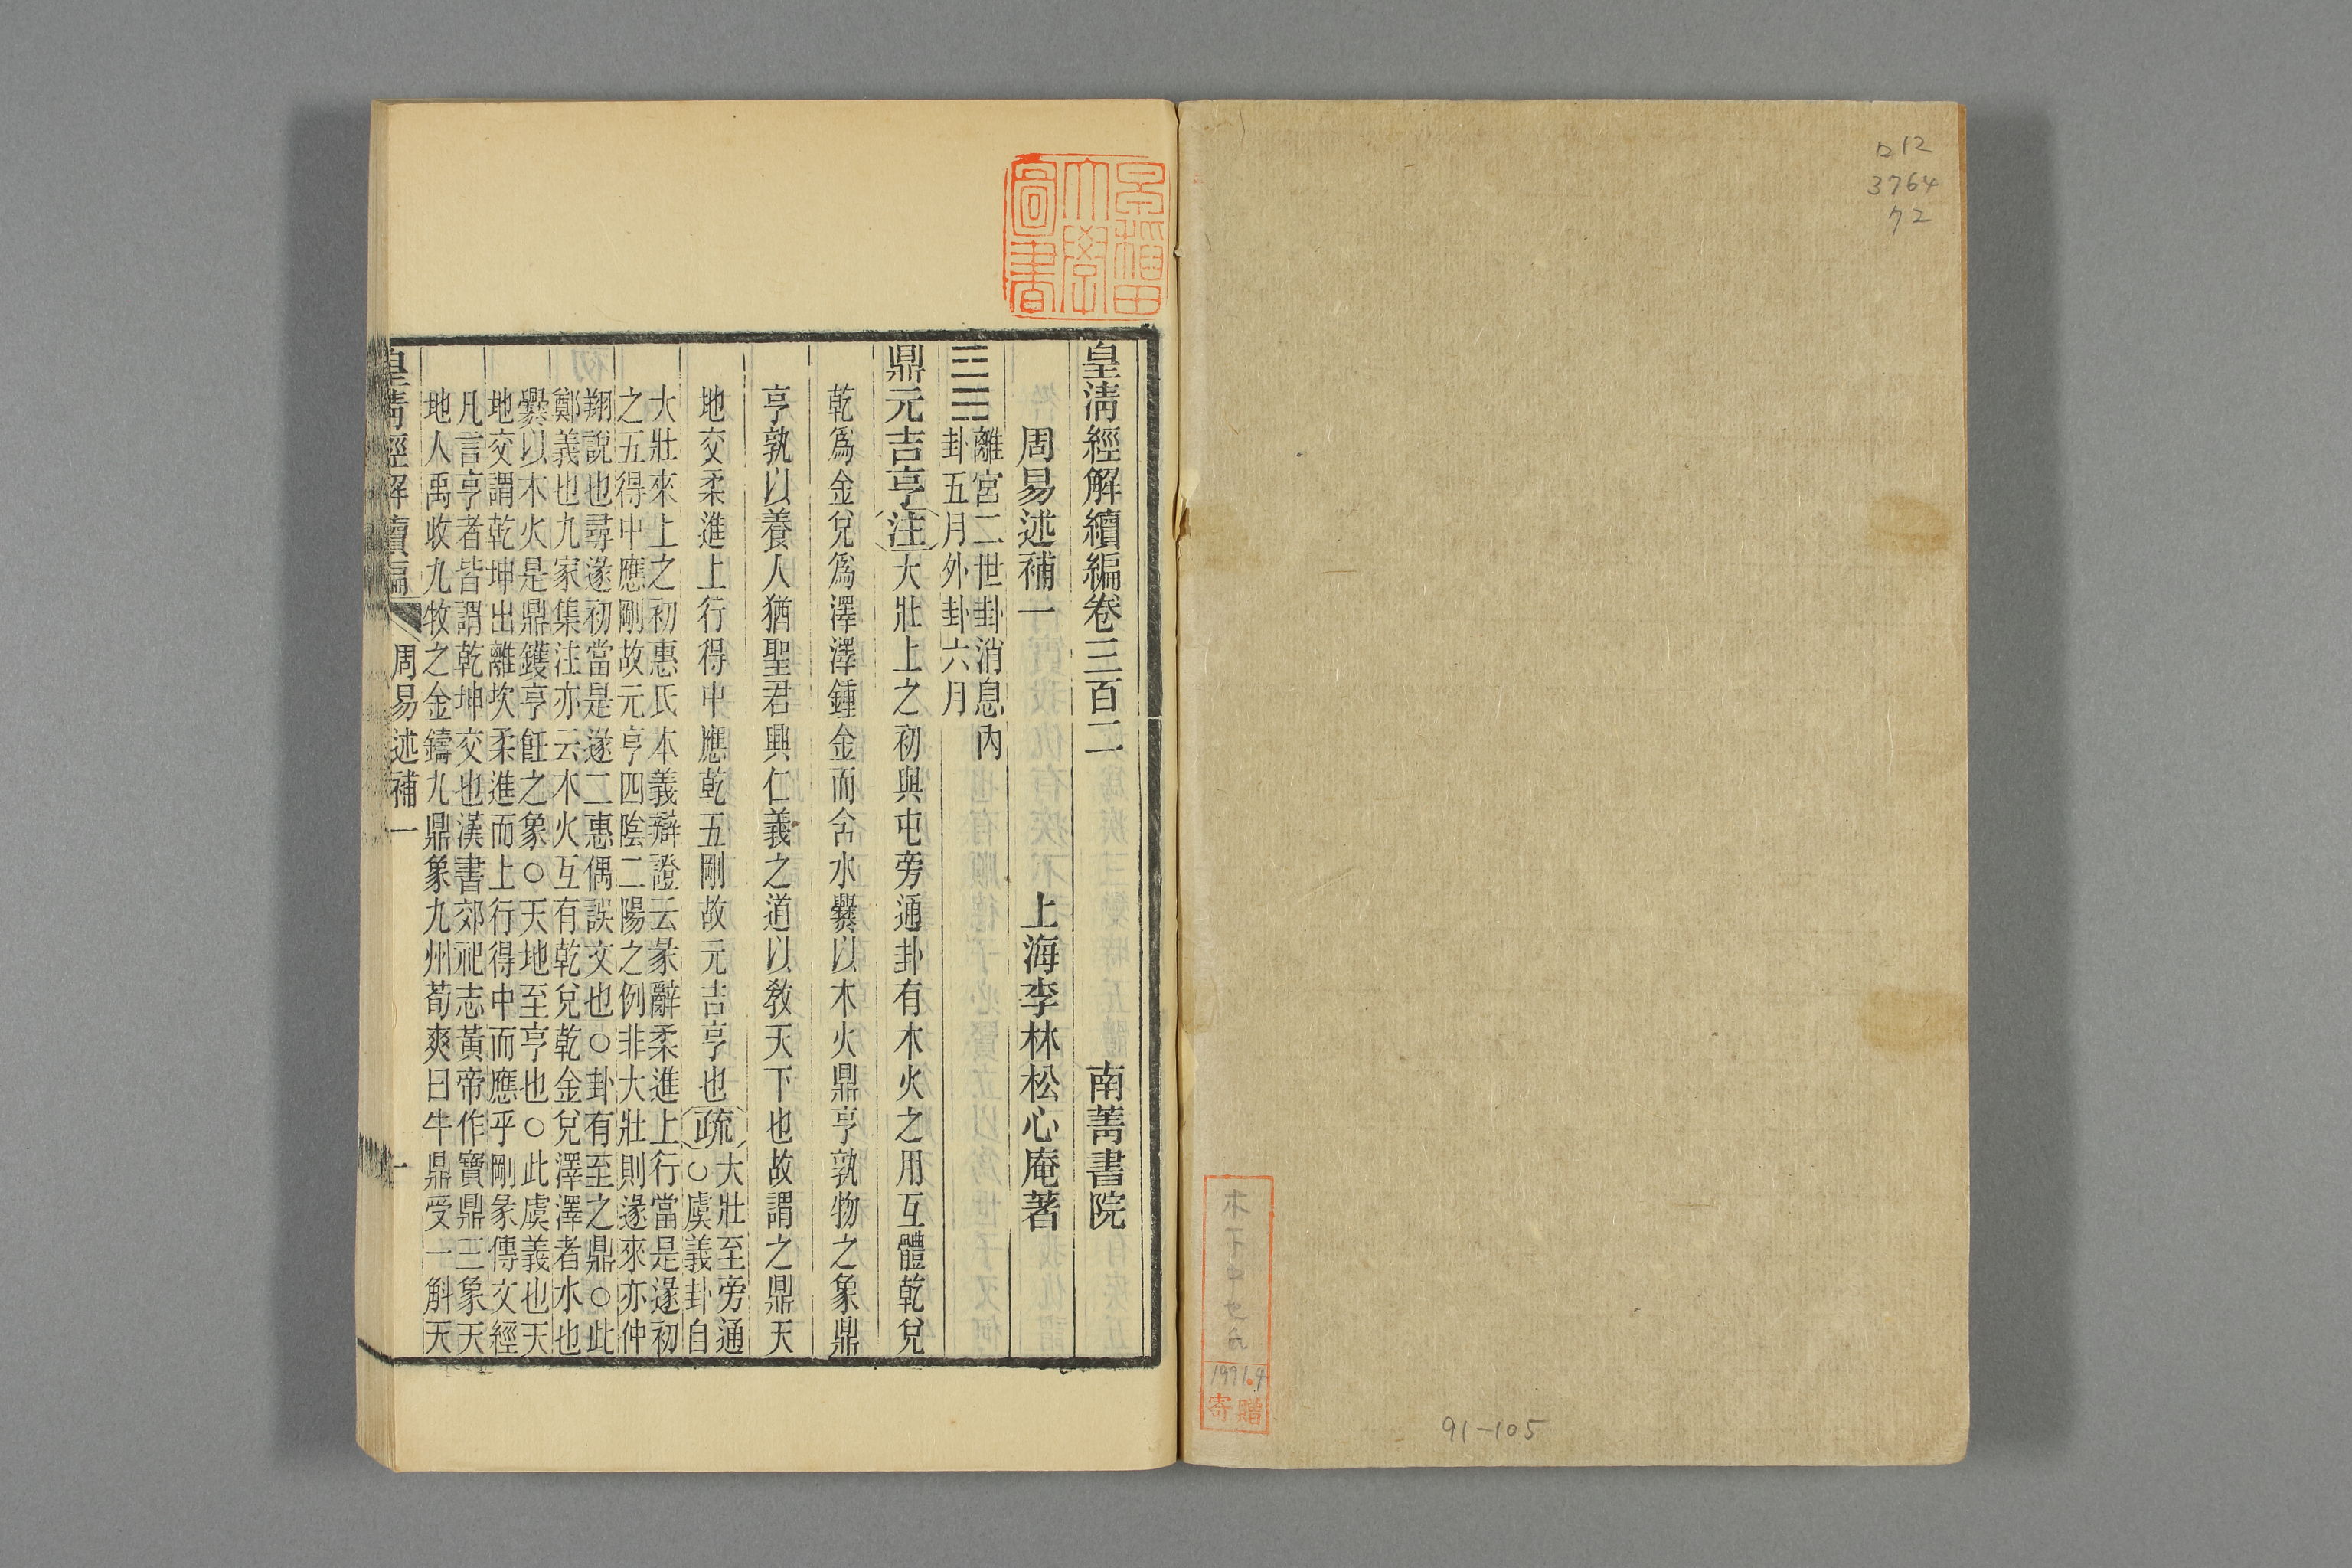 ロ12
3764
72
91-105
1991.9
寄贈
早稲田大學圖書
皇淸經解續編卷三百二
南菁書院
周易述補一
上海李林松心庵著
離宮二世卦消息內
卦五月外卦六月
鼎元吉亨注大壯上之初與屯旁通卦有木火之用互體乾兌
乾爲金兌爲澤澤鍾金而含水爨以木火鼎亨孰物之象鼎
亨孰以養人猶聖君興仁義之道以敎天下也故謂之鼎天
地交柔進上行得中應乾五剛故元吉亨也疏
大壯至旁通
○虞義卦自
大壯來上之初惠氏本義辯證云彖辭柔進上行當是遂初
之五得中應剛故元亨四陰二陽之例非大壯則遂來亦仲
翔說也尋遂初當是遂二惠偶誤交也○卦有至之鼎○此
鄭義也九家集注亦云木火互有乾兌乾金兌澤澤者水也
爨以木火是鼎鑊亨飪之象○天地至亨也○此虞義也天
地交謂乾坤出離坎柔進而上行得中而應乎剛彖傳文經
凡言亨者皆謂乾坤交也漢書郊祀志黃帝作寶鼎三象天
地人禹收九牧之金鑄九鼎象九州荀爽曰牛鼎受一斛天
皇淸經解續編
周易述補一
一